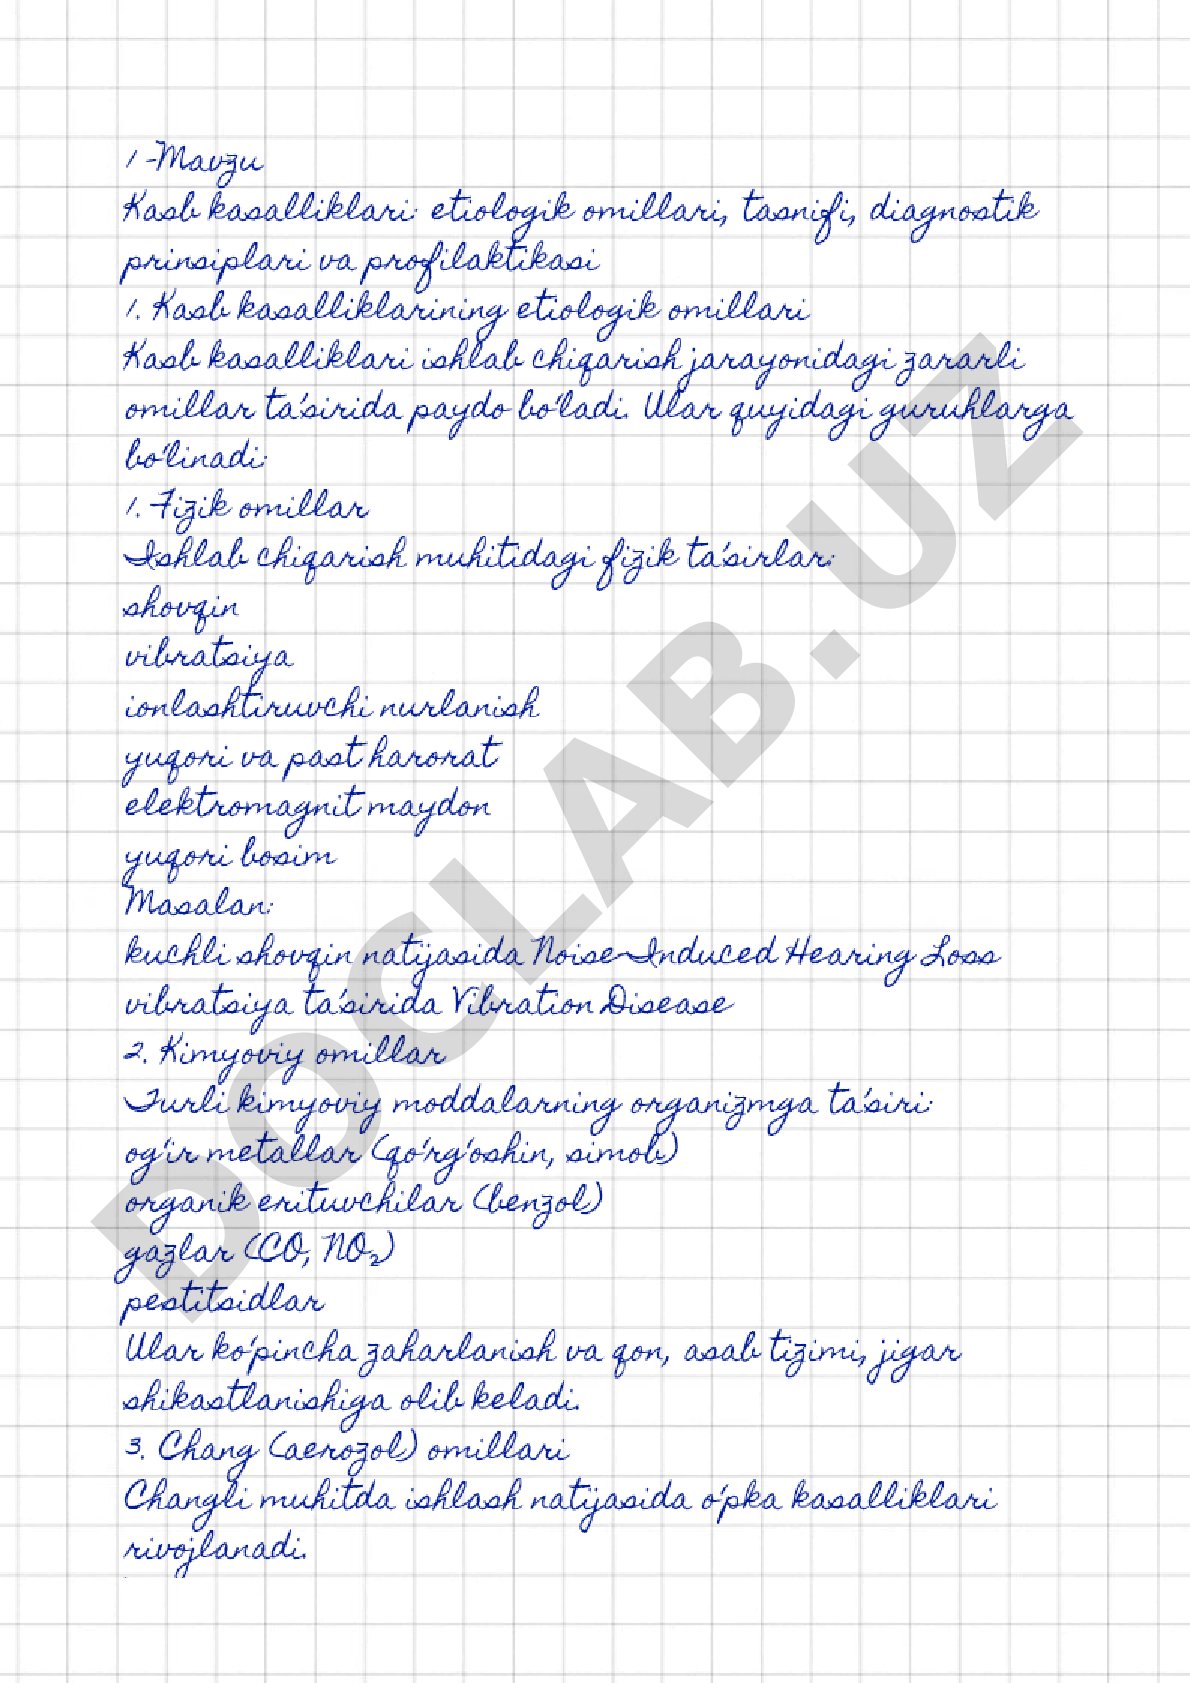 1-Mavzu
Kasb kasalliklari: etiologik omillari, tasnifi, diagnostik
prinsiplari va profilaktikasi
1. Kasb kasalliklarining etiologik omillari
Kasb kasalliklari ishlab chiqarish jarayonidagi zararli
omillar ta'sirida paydo bo'ladi. Ular quyidagi guruhlarga
bo'linadi:
1. Fizik omillar
Ishlab chiqarish muhitidagi fizik ta'sirlar:
shovqin
vibratsiya
ionlashtiruvchi nurlanish
yuqori va past harorat
elektromagnit maydon
yuqori bosim
Masalan:
kuchli shovqin natijasida Noise-Induced Hearing Loss
vibratsiya ta'sirida Vibration Disease
2. Kimyoviy omillar
Turli kimyoviy moddalarning organizmga ta'siri:
og'ir metallar (qo'rg'oshin, simob)
organik erituvchilar (benzol)
gazlar (CO, NO₂)
pestitsidlar
Ular ko'pincha zaharlanish va qon, asab tizimi, jigar
shikastlanishiga olib keladi.
3. Chang (aerozol) omillari
Changli muhitda ishlash natijasida o'pka kasalliklari
rivojlanadi.
DOCLAB.UZ